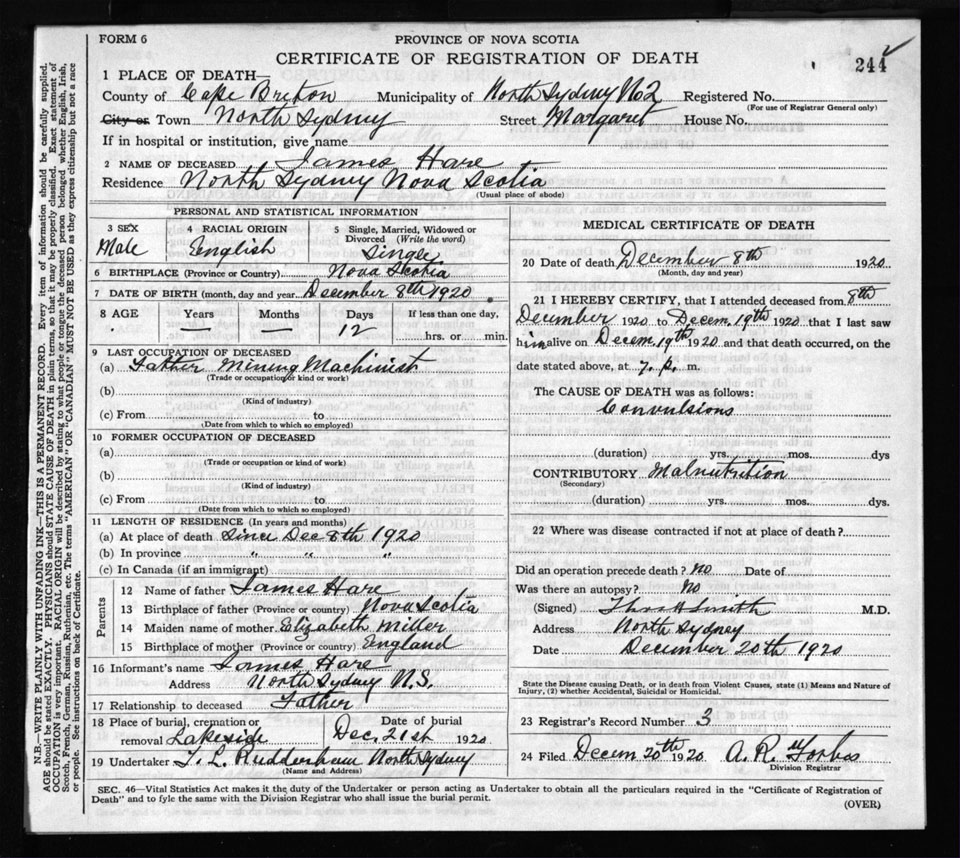 FORM 6
PROVINCE OF NOVA SCOTIA
CERTIFICATE OF REGISTRATION OF DEATH
244
1 PLACE OF DEATH—
County of Cape Breton Municipality of North Sydney No2 Registered No.
(For use of Registrar General only)
City or Town North Sydney Street Margaret House No.
If in hospital or institution, give name
2 NAME OF DECEASED James Hare
Residence North Sydney Nova Scotia
(Usual place of abode)
PERSONAL AND STATISTICAL INFORMATION
3 SEX
Male
4 RACIAL ORIGIN
English
5 Single, Married, Widowed or
Divorced (Write the word)
Single
6 BIRTHPLACE (Province or Country) Nova Scotia
7 DATE OF BIRTH (month, day and year December 8th 1920
8 AGE Years Months Days If less than one day,
— — 12 hrs. or min.
9 LAST OCCUPATION OF DECEASED
(a) Father Mining Machinist
(Trade or occupation or kind or work)
(b)
(Kind of industry)
(c) From to
(Date from which to which so employed)
10 FORMER OCCUPATION OF DECEASED
(a)
(Trade or occupation or kind of work)
(b)
(Kind of industry)
(c) From to
(Date from which to which so employed)
11 LENGTH OF RESIDENCE (In years and months)
(a) At place of death Since Dec 8th 1920
(b) In province " " "
(c) In Canada (if an immigrant)
Parents
12 Name of father James Hare
13 Birthplace of father (Province or country) Nova Scotia
14 Maiden name of mother Elizabeth Miller
15 Birthplace of mother (Province or country) England
16 Informant's name James Hare
Address North Sydney N.S.
17 Relationship to deceased Father
18 Place of burial, cremation or
removal Lakeside
Date of burial
Dec. 21st 1920
19 Undertaker T. L. Rudderham North Sydney
(Name and Address)
MEDICAL CERTIFICATE OF DEATH
20 Date of death December 8th 1920
(Month, day and year)
21 I HEREBY CERTIFY, that I attended deceased from 8th
December 1920 to Decem. 19th 1920 that I last saw
him alive on Decem. 19th 1920 and that death occurred, on the
date stated above, at 7. p. m.
The CAUSE OF DEATH was as follows:
Convulsions
(duration) yrs. mos. dys
CONTRIBUTORY Malnutrition
(Secondary)
(duration) yrs. mos. dys.
22 Where was disease contracted if not at place of death?
Did an operation precede death? No Date of
Was there an autopsy? No
(Signed) Thos H Smith M.D.
Address North Sydney
Date December 20th 1920
State the Disease causing Death, or in death from Violent Causes, state (1) Means and Nature of
Injury, (2) whether Accidental, Suicidal or Homicidal.
23 Registrar's Record Number 3
24 Filed Decem 20th 1920 A. R. Forbes
Division Registrar
SEC. 46—Vital Statistics Act makes it the duty of the Undertaker or person acting as Undertaker to obtain all the particulars required in the "Certificate of Registration of
Death" and to fyle the same with the Division Registrar who shall issue the burial permit.
(OVER)
N.B.—WRITE PLAINLY WITH UNFADING INK—THIS IS A PERMANENT RECORD. Every item of information should be carefully supplied.
AGE should be stated EXACTLY. PHYSICIANS should STATE CAUSE OF DEATH in plain terms, so that it may be properly classified. Exact statement of
OCCUPATION is very important. RACIAL ORIGIN will be described by stating to what people or tongue the deceased person belonged whether English, Irish,
Scotch, French, German, Russian, Ruthenian, etc. The terms "AMERICAN" OR "CANADIAN" MUST NOT BE USED as they express citizenship but not a race
or people. See instructions on back of Certificate.